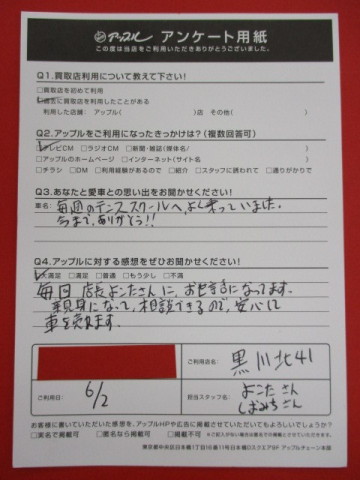 アップル アンケート用紙
この度は当店をご利用いただきありがとうございました。
Q1.買取店利用について教えて下さい!
□買取店を初めて利用
□過去に買取店を利用したことがある
利用した店舗: アップル( )店 その他( )
Q2.アップルをご利用になったきっかけは?(複数回答可)
□テレビCM □ラジオCM □新聞・雑誌(媒体名/ )
□アップルのホームページ □インターネット(サイト名 )
□チラシ □DM □利用経験があるので □紹介 □スタッフに誘われて □通りがかりで
Q3.あなたと愛車との思い出をお聞かせください!
車名: 毎週のテニススクールへ、よく乗っていました。
今まで、ありがとう!!
Q4.アップルに対する感想をぜひお聞かせください!
□大満足 □満足 □普通 □もう少し □不満
毎回 店長 よこたさんに、お世話になってます。
親身になって、相談できるので、安心して
車を売れます。
ご利用店名: 黒川北41
ご利用日: 6/2
担当スタッフ名: よこた さん
しおみち さん
お客様に書いていただいた感想を、アップルHPや広告に掲載させていただいてもよろしいでしょうか?
□実名で掲載可 □匿名なら掲載可 □掲載不可
東京都中央区日本橋1丁目16番11号日本橋Dスクエア8F アップルチェーン本部